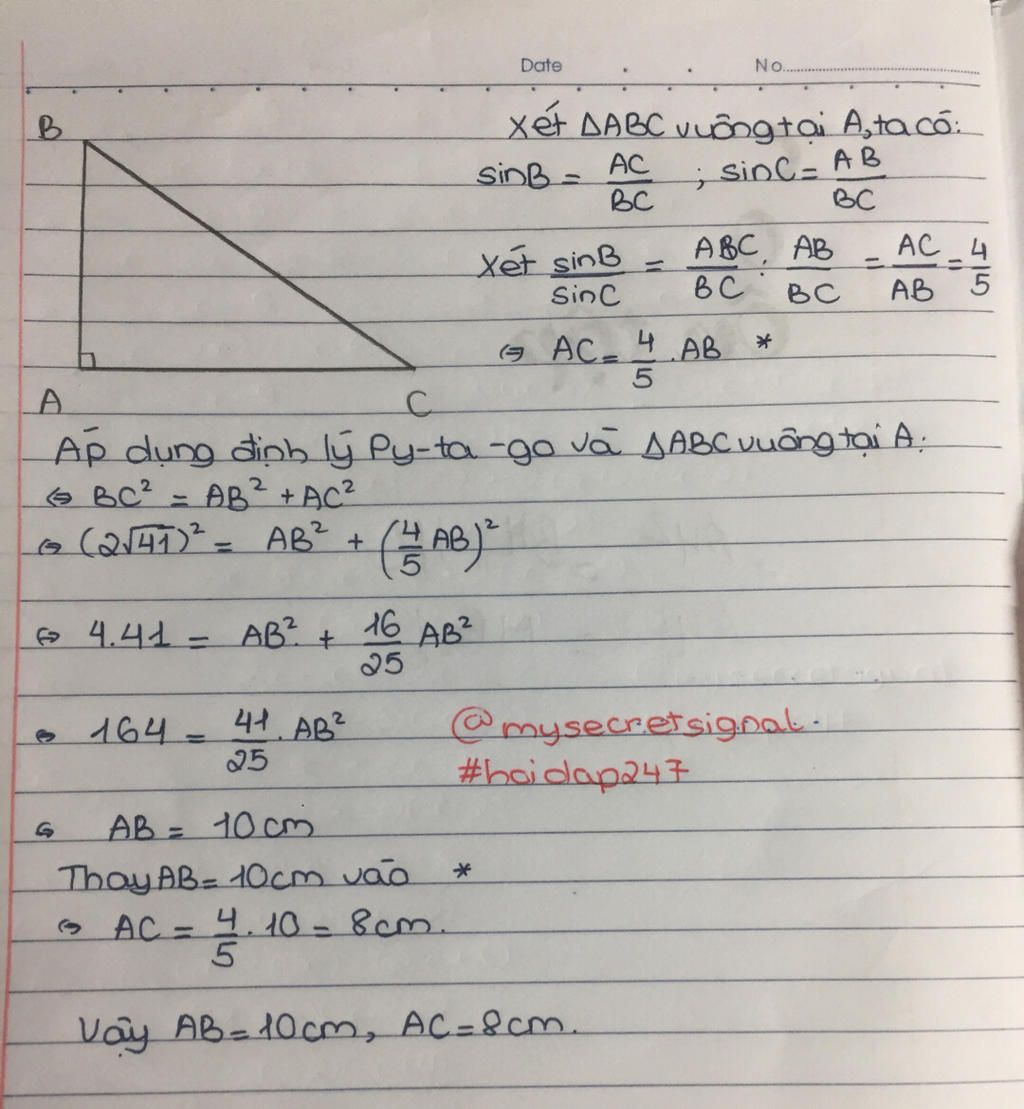 Date . . No
B
Xét ΔABC vuông tại A, ta có:
sinB = AC/BC ; sinC = AB/BC
Xét sinB/sinC = ABC/BC : AB/BC = AC/AB = 4/5
⇔ AC = 4/5 . AB *
A C
Áp dụng định lý Py-ta-go và ΔABC vuông tại A:
⇔ BC² = AB² + AC²
⇔ (2√41)² = AB² + (4/5 AB)²
⇔ 4.41 = AB² + 16/25 AB²
⇔ 164 = 41/25 . AB²
@mysecretsignal.
#hoidap247
⇔ AB = 10cm
Thay AB = 10cm vào *
⇔ AC = 4/5 . 10 = 8cm.
Vậy AB = 10cm, AC = 8cm.